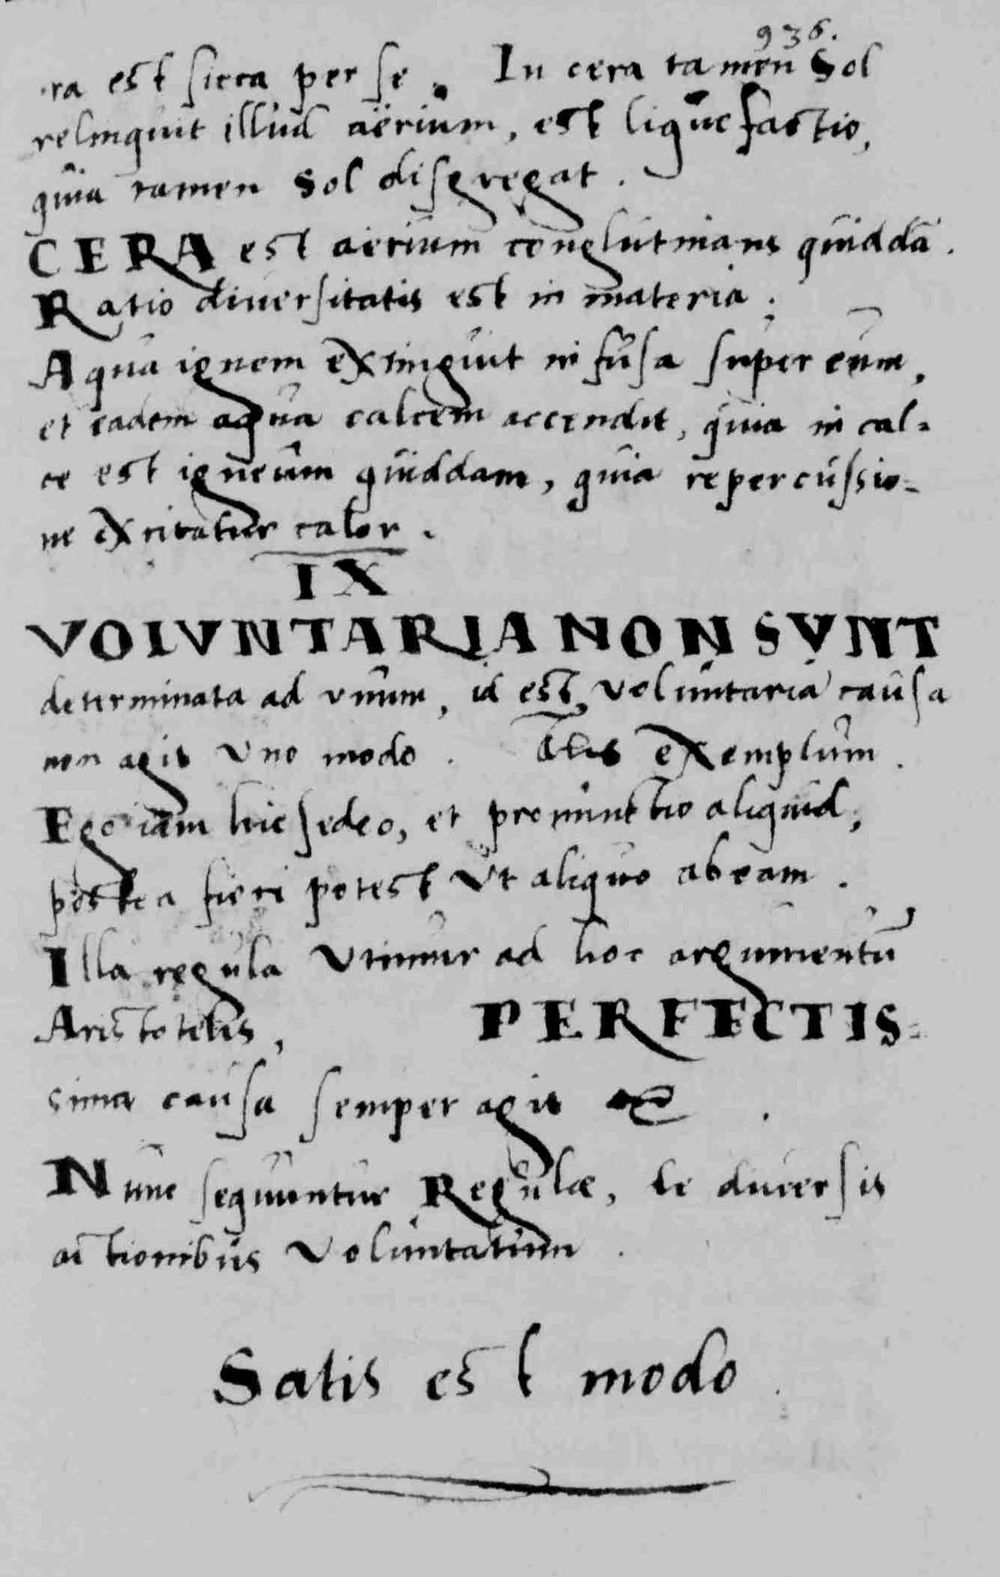 936.
ra est sicca per se. In cera tamen Sol
relinquit illud aërium, est liquefactio,
quia tamen Sol disgregat.
CERA est aërium conglutinans quiddā.
Ratio diversitatis est in materia.
Aqua ignem extinguit infusa super eum,
et eadem aqua calcem accendit, quia in cal-
ce est igneum quiddam, quia repercussio-
ne excitatur calor.
IX
VOLUNTARIA NON SUNT
determinata ad unum, id est, voluntaria causa
non agit uno modo. exemplum.
Ego iam hic sedeo, et pronunctio aliquid,
postea fieri potest ut aliquo abeam.
Illa regula Utimur ad hoc argumentū
Aristotelis, PERFECTIS-
sima causa semper agit
Nunc sequuntur Regulæ, de diversis
actionibus Voluntatum.
Satis est modo.